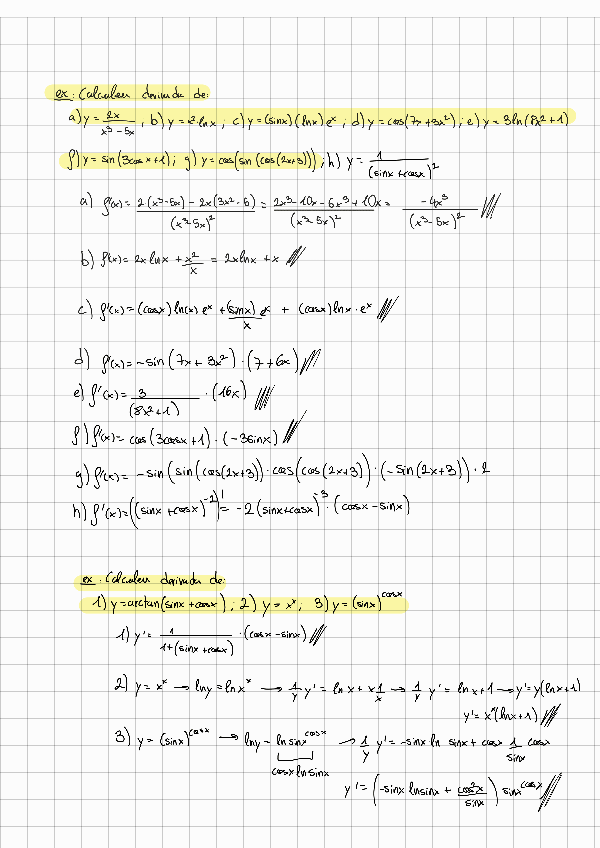 ex: Calculeu derivada de:
a) y = 2x/(x³-5x), b) y = x² lnx; c) y = (sinx)(lnx)eˣ; d) y = cos(7x+3x²); e) y = 3ln(8x²+1)
f) y = sin(3cosx+1); g) y = cos(sin(cos(2x+3))); h) y = 1/(sinx+cosx)²
a) f'(x) = (2(x³-5x) - 2x(3x²-5))/(x³-5x)² = (2x³-10x-6x³+10x)/(x³-5x)² = -4x³/(x³-5x)²
b) f'(x) = 2x lnx + x²/x = 2x lnx + x
c) f'(x) = (cosx) ln(x) eˣ + (sinx)/x eˣ + (cosx) lnx · eˣ
d) f'(x) = -sin(7x+3x²) · (7+6x)
e) f'(x) = 3/(8x²+1) · (16x)
f) f'(x) = cos(3cosx+1) · (-3sinx)
g) f'(x) = -sin(sin(cos(2x+3)) · cos(cos(2x+3)) · (-sin(2x+3)) · 2
h) f'(x) = ((sinx+cosx)⁻²)' = -2(sinx+cosx)⁻³ · (cosx-sinx)
ex: Calculeu derivada de:
1) y = arctan(sinx+cosx); 2) y = xˣ; 3) y = (sinx)^cosx
1) y' = 1/(1+(sinx+cosx)) · (cosx-sinx)
2) y = xˣ → lny = lnxˣ → 1/y y' = lnx + x 1/x → 1/y y' = lnx+1 → y' = y(lnx+1)
y' = xˣ(lnx+1)
3) y = (sinx)^cosx → lny = lnsinx^cosx → 1/y y' = -sinx ln sinx + cosx 1/sinx cosx
cosx lnsinx
y' = (-sinx lnsinx + cos²x/sinx) sinx^cosx